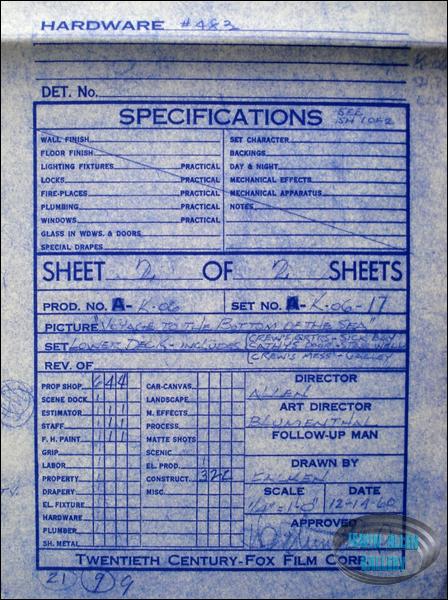 HARDWARE #483
DET. No.
SPECIFICATIONS SEE SH 1 OF 2
WALL FINISH
FLOOR FINISH
LIGHTING FIXTURES PRACTICAL
LOCKS PRACTICAL
FIRE-PLACES PRACTICAL
PLUMBING PRACTICAL
WINDOWS PRACTICAL
GLASS IN WDWS. & DOORS
SPECIAL DRAPES
SET CHARACTER
BACKINGS
DAY & NIGHT
MECHANICAL EFFECTS
MECHANICAL APPARATUS
NOTES
SHEET 2 OF 2 SHEETS
PROD. NO. A-K-06 SET NO. A-K-06-17
PICTURE "VOYAGE TO THE BOTTOM OF THE SEA"
SET LOWER DECK - INCLUDES CREW'S QTRS - SICK BAY
CREW'S MESS - GALLEY
REV. OF
PROP SHOP 6 4 4
SCENE DOCK 1
ESTIMATOR 1 1 1
STAFF 1 1 1
F. H. PAINT 1 1 1
GRIP
LABOR
PROPERTY 1
DRAPERY
EL. FIXTURE
HARDWARE
PLUMBER
SH. METAL
CAR-CANVAS
LANDSCAPE
M. EFFECTS
PROCESS
MATTE SHOTS
SCENIC
EL. PROD. 1
CONSTRUCT. 3 2 2
MISC.
DIRECTOR
ALLEN
ART DIRECTOR
BLUMENTHAL
FOLLOW-UP MAN
DRAWN BY
SCALE DATE
1/4" = 1'-0" 12-14-60
APPROVED
TWENTIETH CENTURY-FOX FILM CORP.
21 9 9